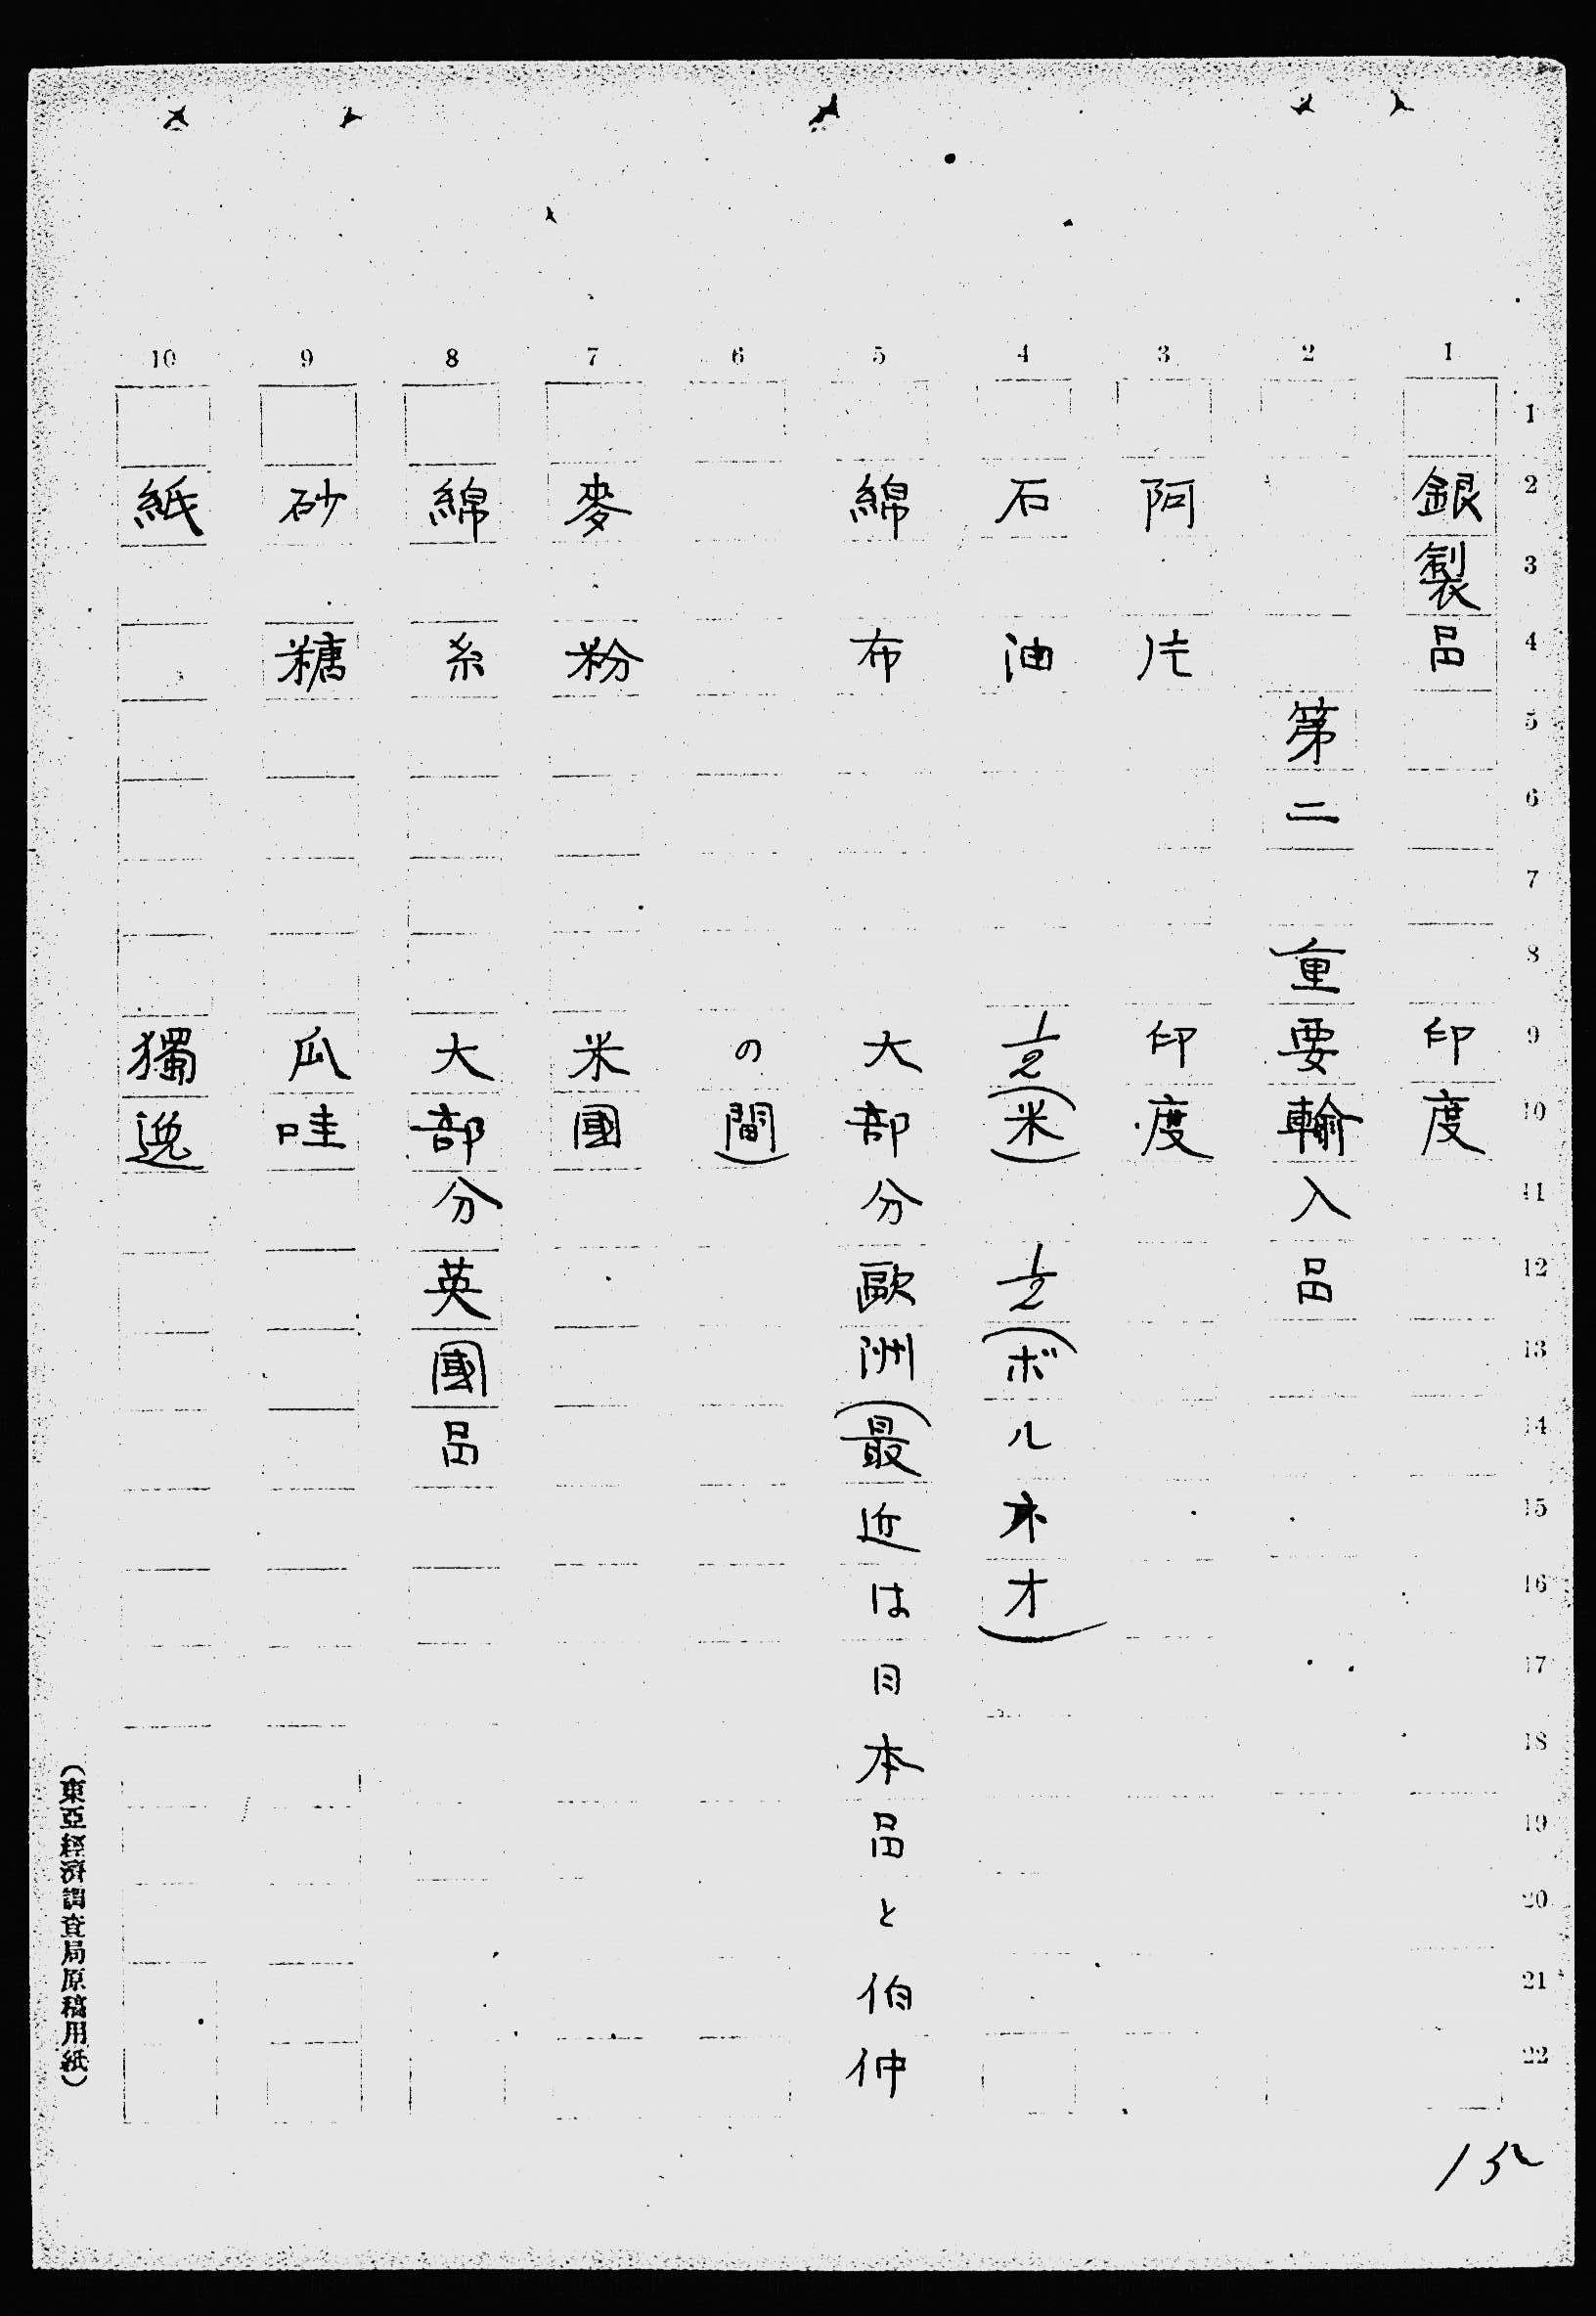 1 2 3 4 5 6 7 8 9 10
1 2 3 4 5 6 7 8 9 10 11 12 13 14 15 16 17 18 19 20 21 22
銀製品 印度
第二 重要輸入品
阿片 印度
石油 1/2(米) 1/2(ボルネオ)
綿布 大部分歐洲(最近は日本品と伯仲
の間)
麥粉 米國
綿糸 大部分英國品
砂糖 瓜哇
紙 獨逸
(東亞經濟調査局原稿用紙)
15